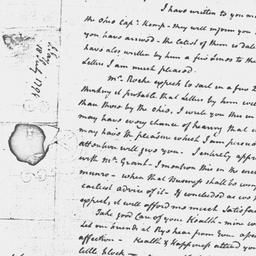 I have written to you
the Ohio Capt. Kemp - they will inform you
you have arrived - the latest of them is dat
have also written by him a few lines to the
Letter I am much pleased.
Mr. Roche expects to sail in a few
thinking it probable that Letters by him will
than those by the Ohio, I write you this in
may have every chance of hearing that
may have the pleasure which I am persuad
attention will give you. I entirely app
with Mr. Grant - I mention this in the
munro - when that Business shall be
earliest advice of it - If concluded as we
expect, it will afford me much Satisfac
Take good Care of your Health - mine
Let our friends at Rye hear from you
affection - Health & Happiness attend you
little black
July 1791